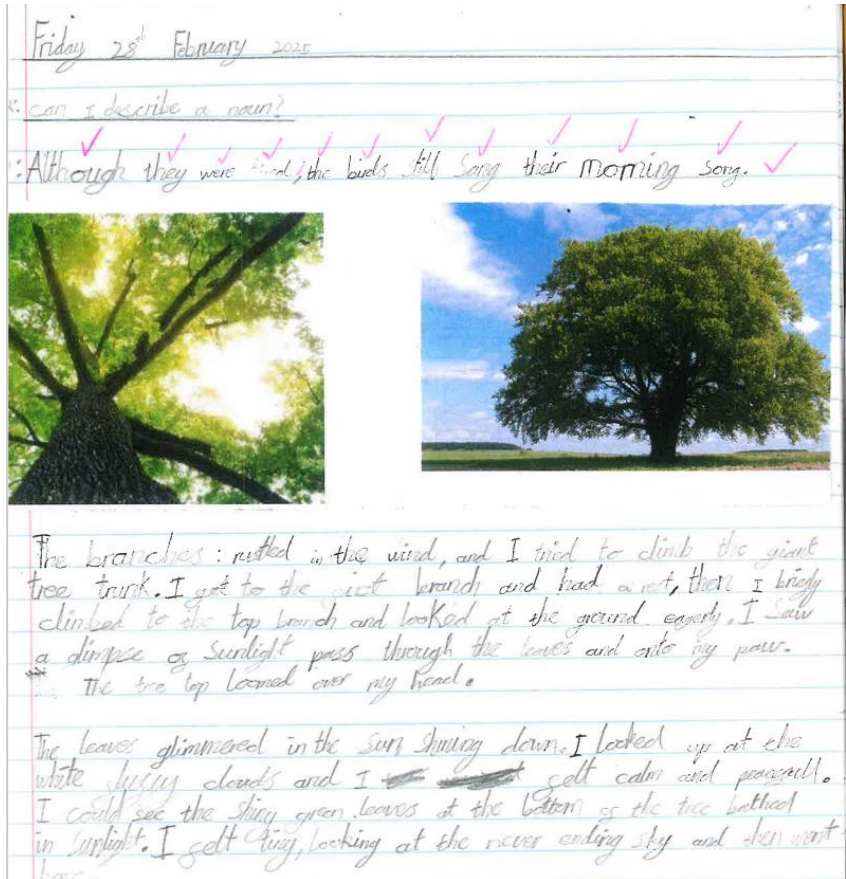 Friday 28th February 2025
can I describe a noun?
Although they were tired, the birds still sang their morning song.
The branches : rustled in the wind, and I tried to climb the giant
tree trunk. I got to the first branch and had a rest, then I briefly
climbed to the top branch and looked at the ground eagerly. I saw
a glimpse of sunlight pass through the leaves and onto my paw.
The tree top loomed over my head.
The leaves glimmered in the sun shining down. I looked up at the
white fluffy clouds and I felt calm and peacefull.
I could see the shiny green leaves at the bottom of the tree bathed
in sunlight. I felt tiny, looking at the never ending sky and then went